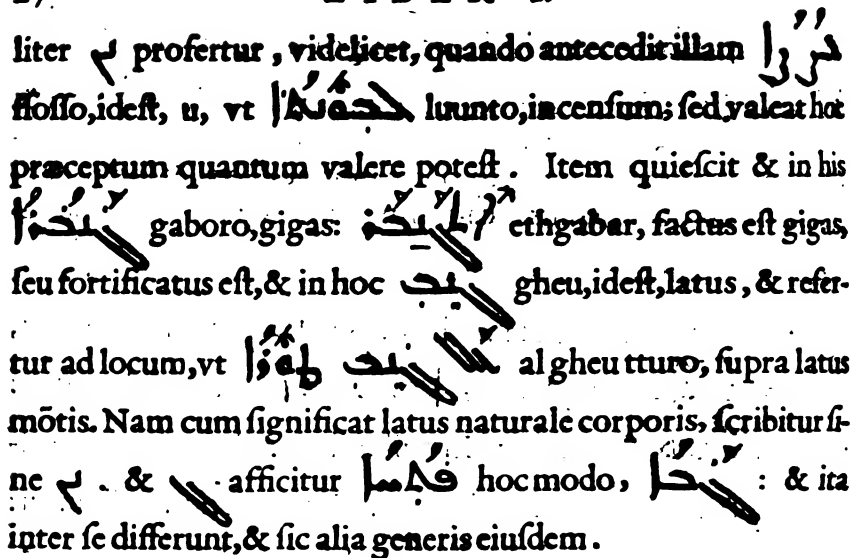 liter ܢ profertur, videlicet, quando antecedit illam
ſſoſſo, ideſt, u, vt ܠܒܘܢܬܐ luunto, incenſum; ſed valeat hoc
præceptum quantum valere poteſt. Item quieſcit & in his
ܓܢܒܪܐ gaboro, gigas: ܐܬܓܢܒܪ ethgabar, factus eſt gigas,
ſeu fortificatus eſt, & in hoc ܓܢܒ gheu, ideſt, latus, & refer-
tur ad locum, vt ܥܠ ܓܢܒ ܛܘܪܐ al gheu tturo, ſupra latus
mõtis. Nam cum ſignificat latus naturale corporis, ſcribitur ſi-
ne ܢ. & ܓ afficitur ܦܬܚܐ hoc modo, ܓܒܐ : & ita
inter ſe differunt, & ſic alia generis eiuſdem.